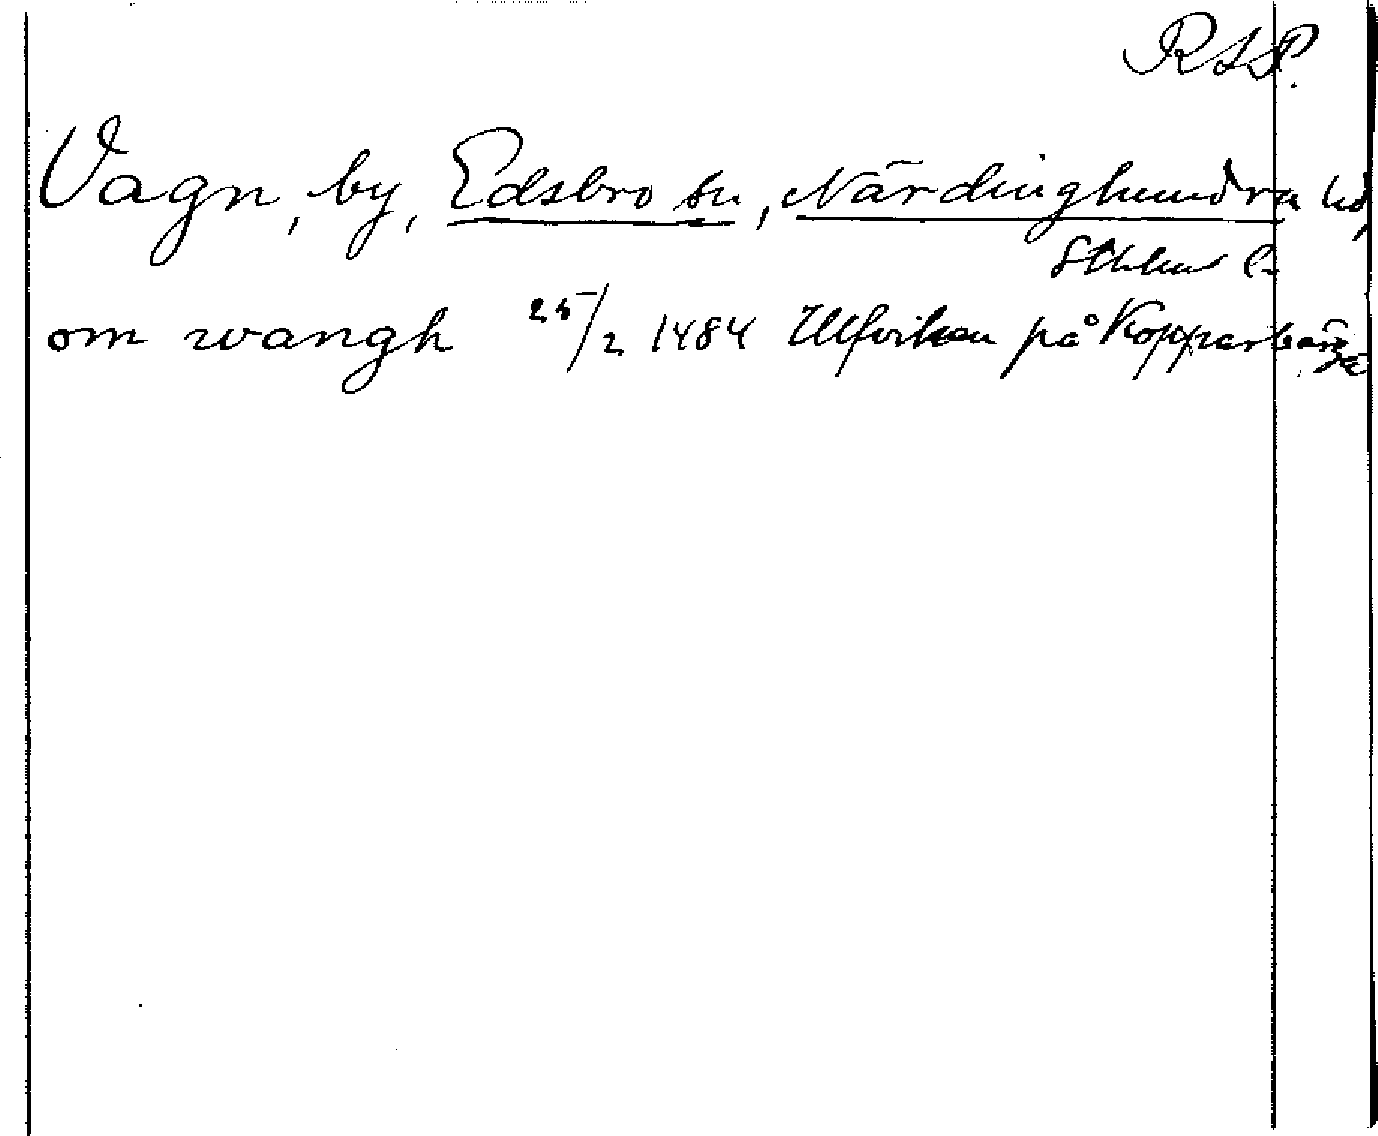 RAP.
Vagn, by, Edsbro sn, Närdinghundra hd,
Sthlms l.
om wangh 25/2 1484 Ulfviken på Kopparbärg